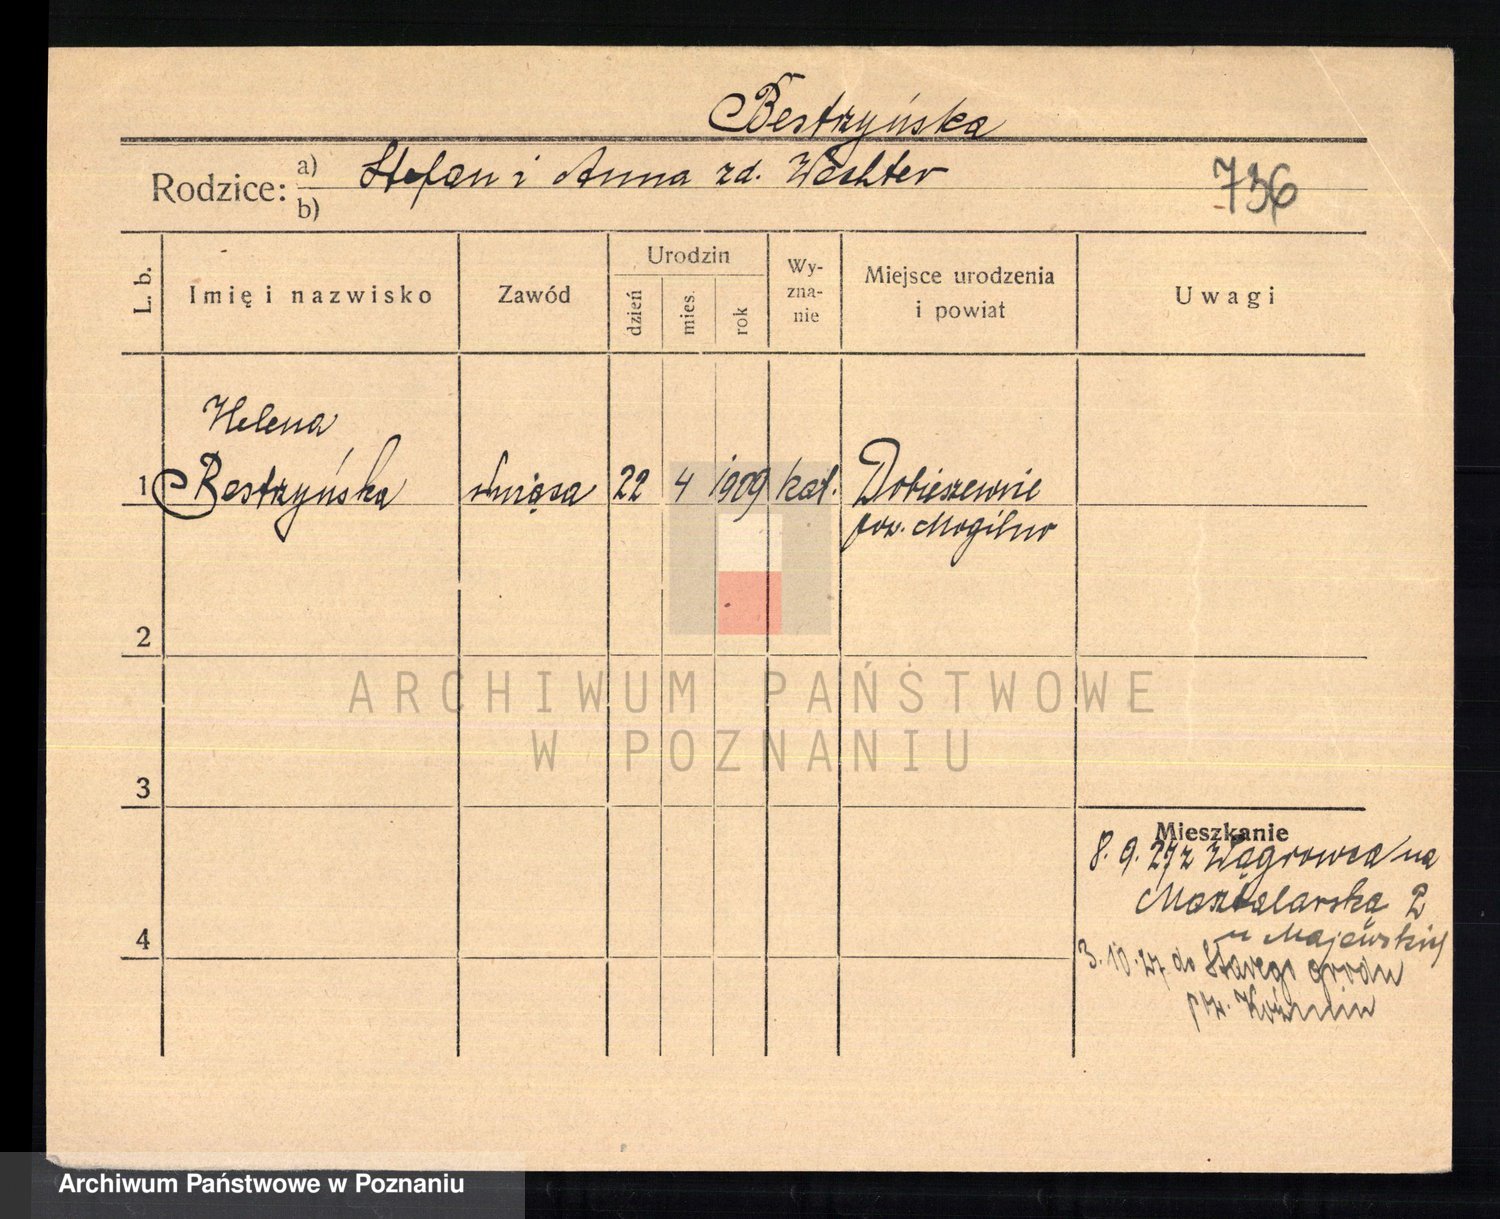 Bestrzyńska
Rodzice: a) Stefan i Anna zd. Wechter
b)
736
L. b.
Imię i nazwisko
Zawód
Urodzin
dzień
mies.
rok
Wy-
zna-
nie
Miejsce urodzenia
i powiat
Uwagi
Helena
1 Bestrzyńska
22 4 1909 kat. Dobieszewnie
pow. Mogilno
2
3
4
Mieszkanie
8. 9. 27 z Wągrowca na
Masztalarską 2
u Majewskiej
3. 10. 27 do Starego grodu
pow. Koźmin
ARCHIWUM PAŃSTWOWE
W POZNANIU
Archiwum Państwowe w Poznaniu